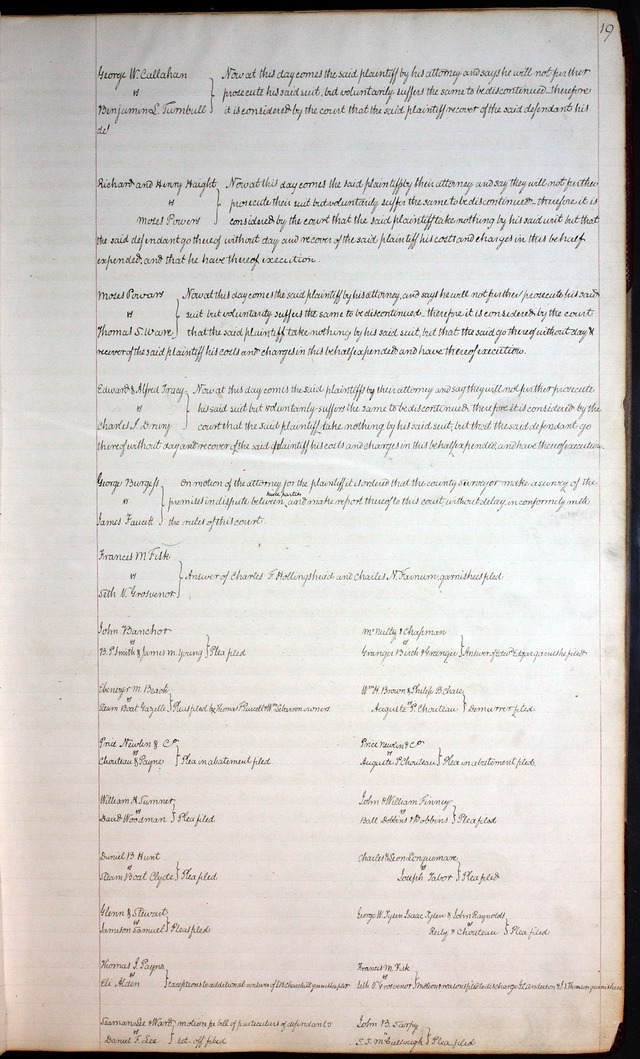 19
George W. Callahan
vs
Benjamin L. Turnbull
Now at this day comes the said plaintiff by his attorney and says he will not further
prosecute his said suit, but voluntarily suffers the same to be discontinued therefore
it is considered by the court that the said plaintiff recover of the said defendant his
de
Richard and Henry Haight
vs
Moses Powers
Now at this day comes the said plaintiffs by their attorney and say they will not further
prosecute their suit but voluntarily suffer the same to be discontinued therefore it is
considered by the court that the said plaintiff take nothing by his said writ but that
the said defendant go thereof without day and recover of the said plaintiff his costs and charges in this behalf
expended, and that he have thereof execution.
Moses Powers
vs
Thomas S. Ware
Now at this day comes the said plaintiff by his attorney, and says he will not further prosecute his said
suit but voluntarily suffers the same to be discontinued. therefore it is considered by the court
that the said plaintiff take nothing by his said suit, but that the said go thereof without day &
recover of the said plaintiff his costs and charges in this behalf expended and have thereof execution.
Edward & Alfred Tracy
vs
Charles S. Drury
Now at this day comes the said plaintiffs by their attorney and say they will not further prosecute
his said suit but voluntarily suffers the same to be discontinued therefore it is considered by the
court that the said plaintiff take nothing by his said suit, but that the said defendant go
thereof without day and recover of the said plaintiff his costs and charges in this behalf expended, and have thereof execution.
George Burgess
vs
James Faucett
On motion of the attorney for the plaintiff it is ordered that the county surveyor make a survey of the
premises in dispute between these parties and make report thereof to this court, without delay, in conformity with
the rules of this court.
Francis M Fisk
vs
Seth V. Grosvenor
Answer of Charles F. Hollingshead and Charles N. Farnum garnishees filed
John Banchor
vs
B. P. Smith & James M. Young } Plea filed
McNulty & Chapman
vs
Granger Birch & Granger } Answer of Edw Edgar garnishee filed
Ebenezer M. Beach
vs
Steam Boat Gazelle } Pleas filed by Thomas & Wm owners
Wm H Brown & Philip B Chase
vs
Auguste P. Chouteau } Demurrer filed
Price Newlin & Co
vs
Chouteau & Payne } Plea in abatement filed
Price Newlin & Co
vs
Auguste P. Chouteau } Plea in abatement filed
William H. Sumner
vs
David Woodman } Plea filed
John & William Finney
vs
Ball Dobbins & Robbins } Plea filed
Daniel B. Hunt
vs
Steam Boat Clyde } Plea filed
Charles & Leon Longuemare
vs
Joseph Tabor } Plea filed
Glenn & Stewart
vs
Jamison Samuel } Pleas filed
George W. Tysen Isaac Tysen & John Raynolds
vs
Reily & Chouteau } Plea filed
Thomas J. Payne
vs
Eli Alden } Exceptions to additional answer of Churchill garnishee filed
Francis M. Fisk
vs
Seth V. Grosvenor } Motion & reasons filed to discharge Anderson & Thomson garnishees
Seaman See & Ward
vs
Daniel F. Lee
motion for bill of particulars of defendants
set-off filed
John B. Sarpy
vs
S. S. McCullough } Plea filed